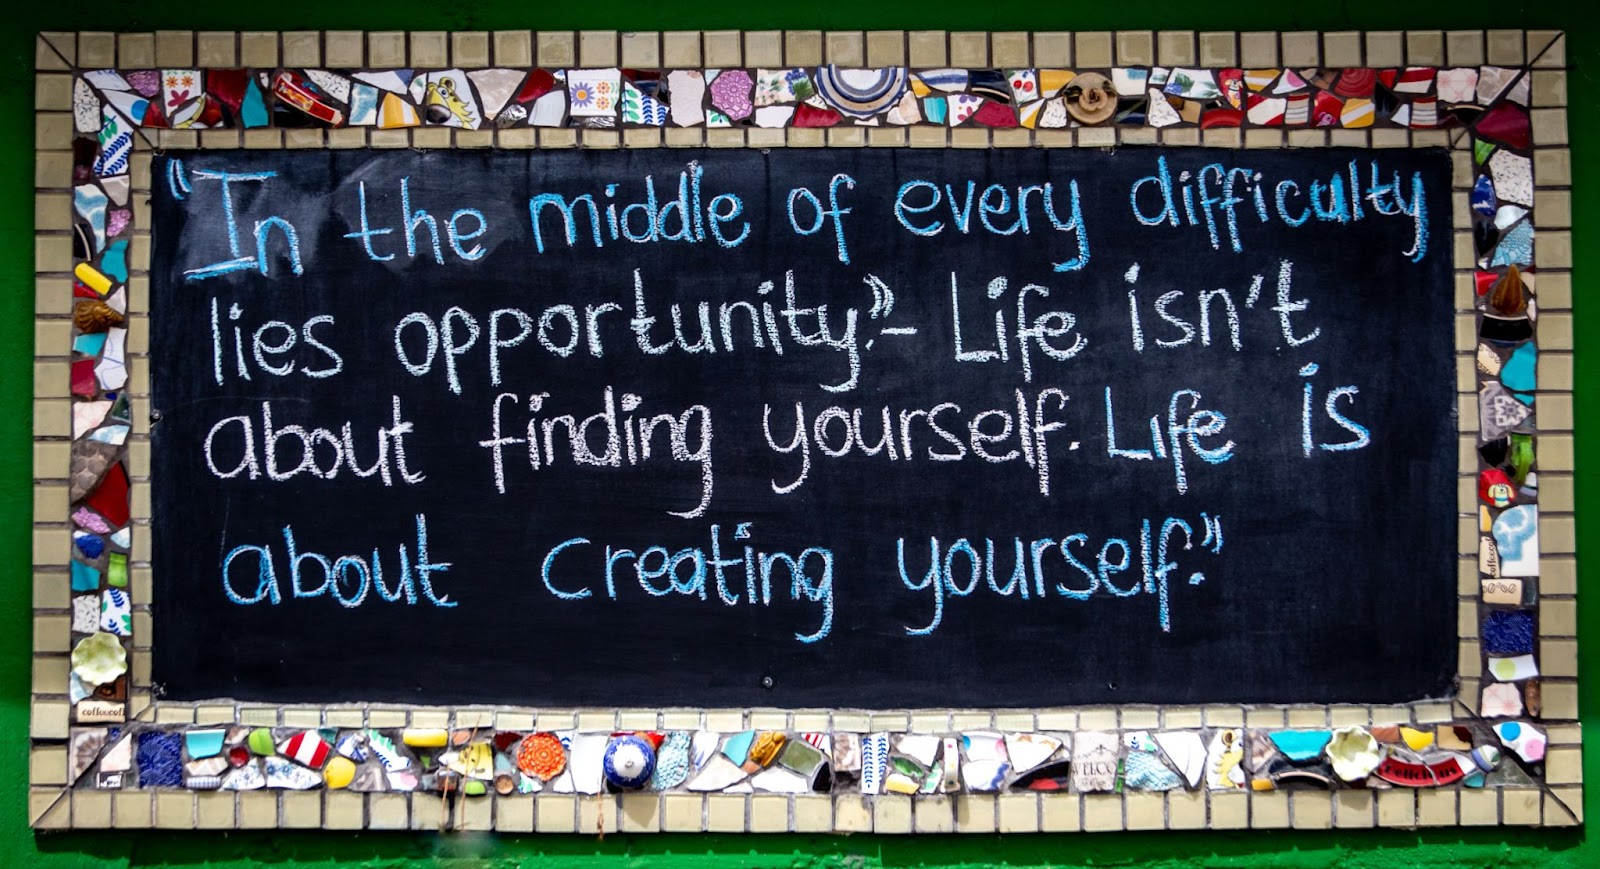 "In the middle of every difficulty
lies opportunity." - Life isn't
about finding yourself. Life is
about creating yourself."
coffeecoff